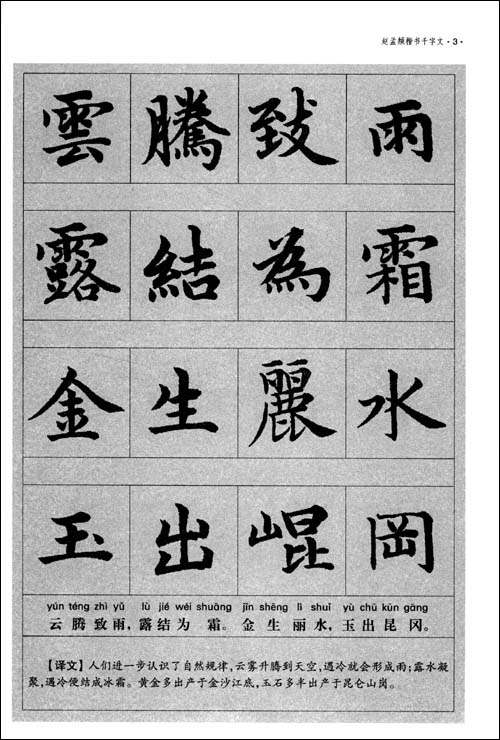 赵孟頫楷书千字文·3·
雲騰致雨
露結為霜
金生麗水
玉出崐岡
yún téng zhì yǔ lù jié wéi shuāng jīn shēng lì shuǐ yù chū kūn gāng
云腾致雨，露结为霜。金生丽水，玉出昆冈。
【译文】人们进一步认识了自然规律，云雾升腾到天空，遇冷就会形成雨；露水凝
聚，遇冷便结成冰霜。黄金多出产于金沙江底，玉石多半出产于昆仑山岗。